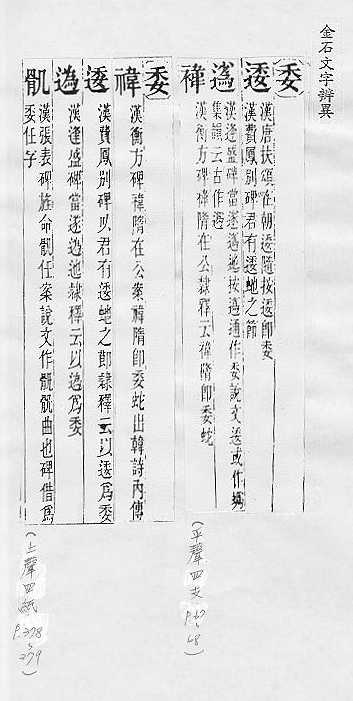 金石文字辨異
委
逶 漢唐扶頌在朝逶隨按逶即委
漢費鳳別碑君有逶虵之節
漢逢盛碑當遂
集韻云古作
褘 漢衡方碑褘隋在公隸釋云褘隋即委蛇
(平聲四支 P.47~48)
委
褘 漢衡方碑褘隋在公案褘隋即委蛇出韓詩內傳
逶 漢費鳳別碑以君有逶虵之節隸釋云以逶爲委
漢逢盛碑當遂迆隸釋云以爲委
骪 漢張表碑於命骪任案說文作骫骫曲也碑借爲
委任字
(上聲四紙 P.378~379)